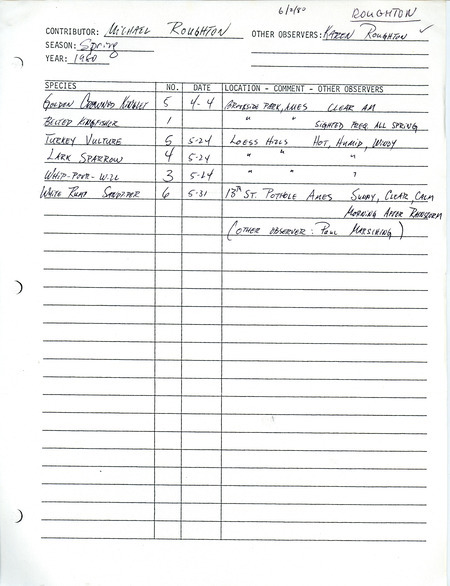 6/2/80 ROUGHTON
CONTRIBUTOR: MICHAEL ROUGHTON OTHER OBSERVERS: KAREN ROUGHTON ✓
SEASON: Spring
YEAR: 1980
SPECIES NO. DATE LOCATION - COMMENT - OTHER OBSERVERS
GOLDEN CROWNED KINGLET 5 4-4 BROOKSIDE PARK, AMES CLEAR AM
BELTED KINGFISHER 1 " " SIGHTED FREQ ALL SPRING
TURKEY VULTURE 5 5-24 LOESS HILLS HOT, HUMID, WINDY
LARK SPARROW 4 5-24 " " "
WHIP-POOR-WILL 3 5-24 " " "
WHITE RUMP SANDPIPER 6 5-31 13TH ST. POTHOLE AMES SUNNY, CLEAR, CALM
MORNING AFTER RAINSTORM
(OTHER OBSERVER: PAUL MARSINING)